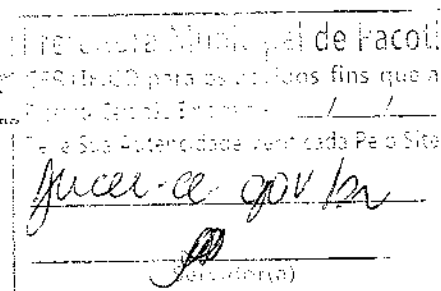 Prefeitura Municipal de Pacoti
CERTIFICO para os devidos fins que a
/ /
Teve Sua Autencidade verificada Pelo Site
jucec.ce.gov.br
Servidor(a)